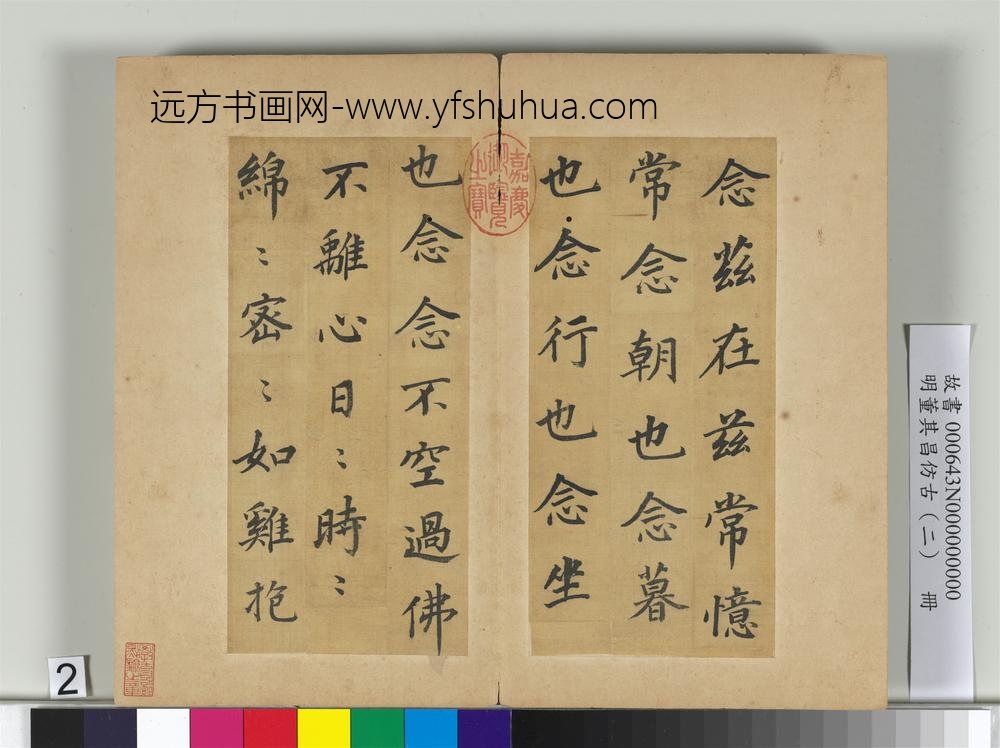 远方书画网-www.yfshuhua.com
念茲在茲常憶
常念朝也念暮
也念行也念坐
也念念不空過佛
不離心日〻時〻
綿〻密〻如雞抱
嘉慶御覽之寶
故書 000643N000000000
明董其昌仿古（二） 冊
2